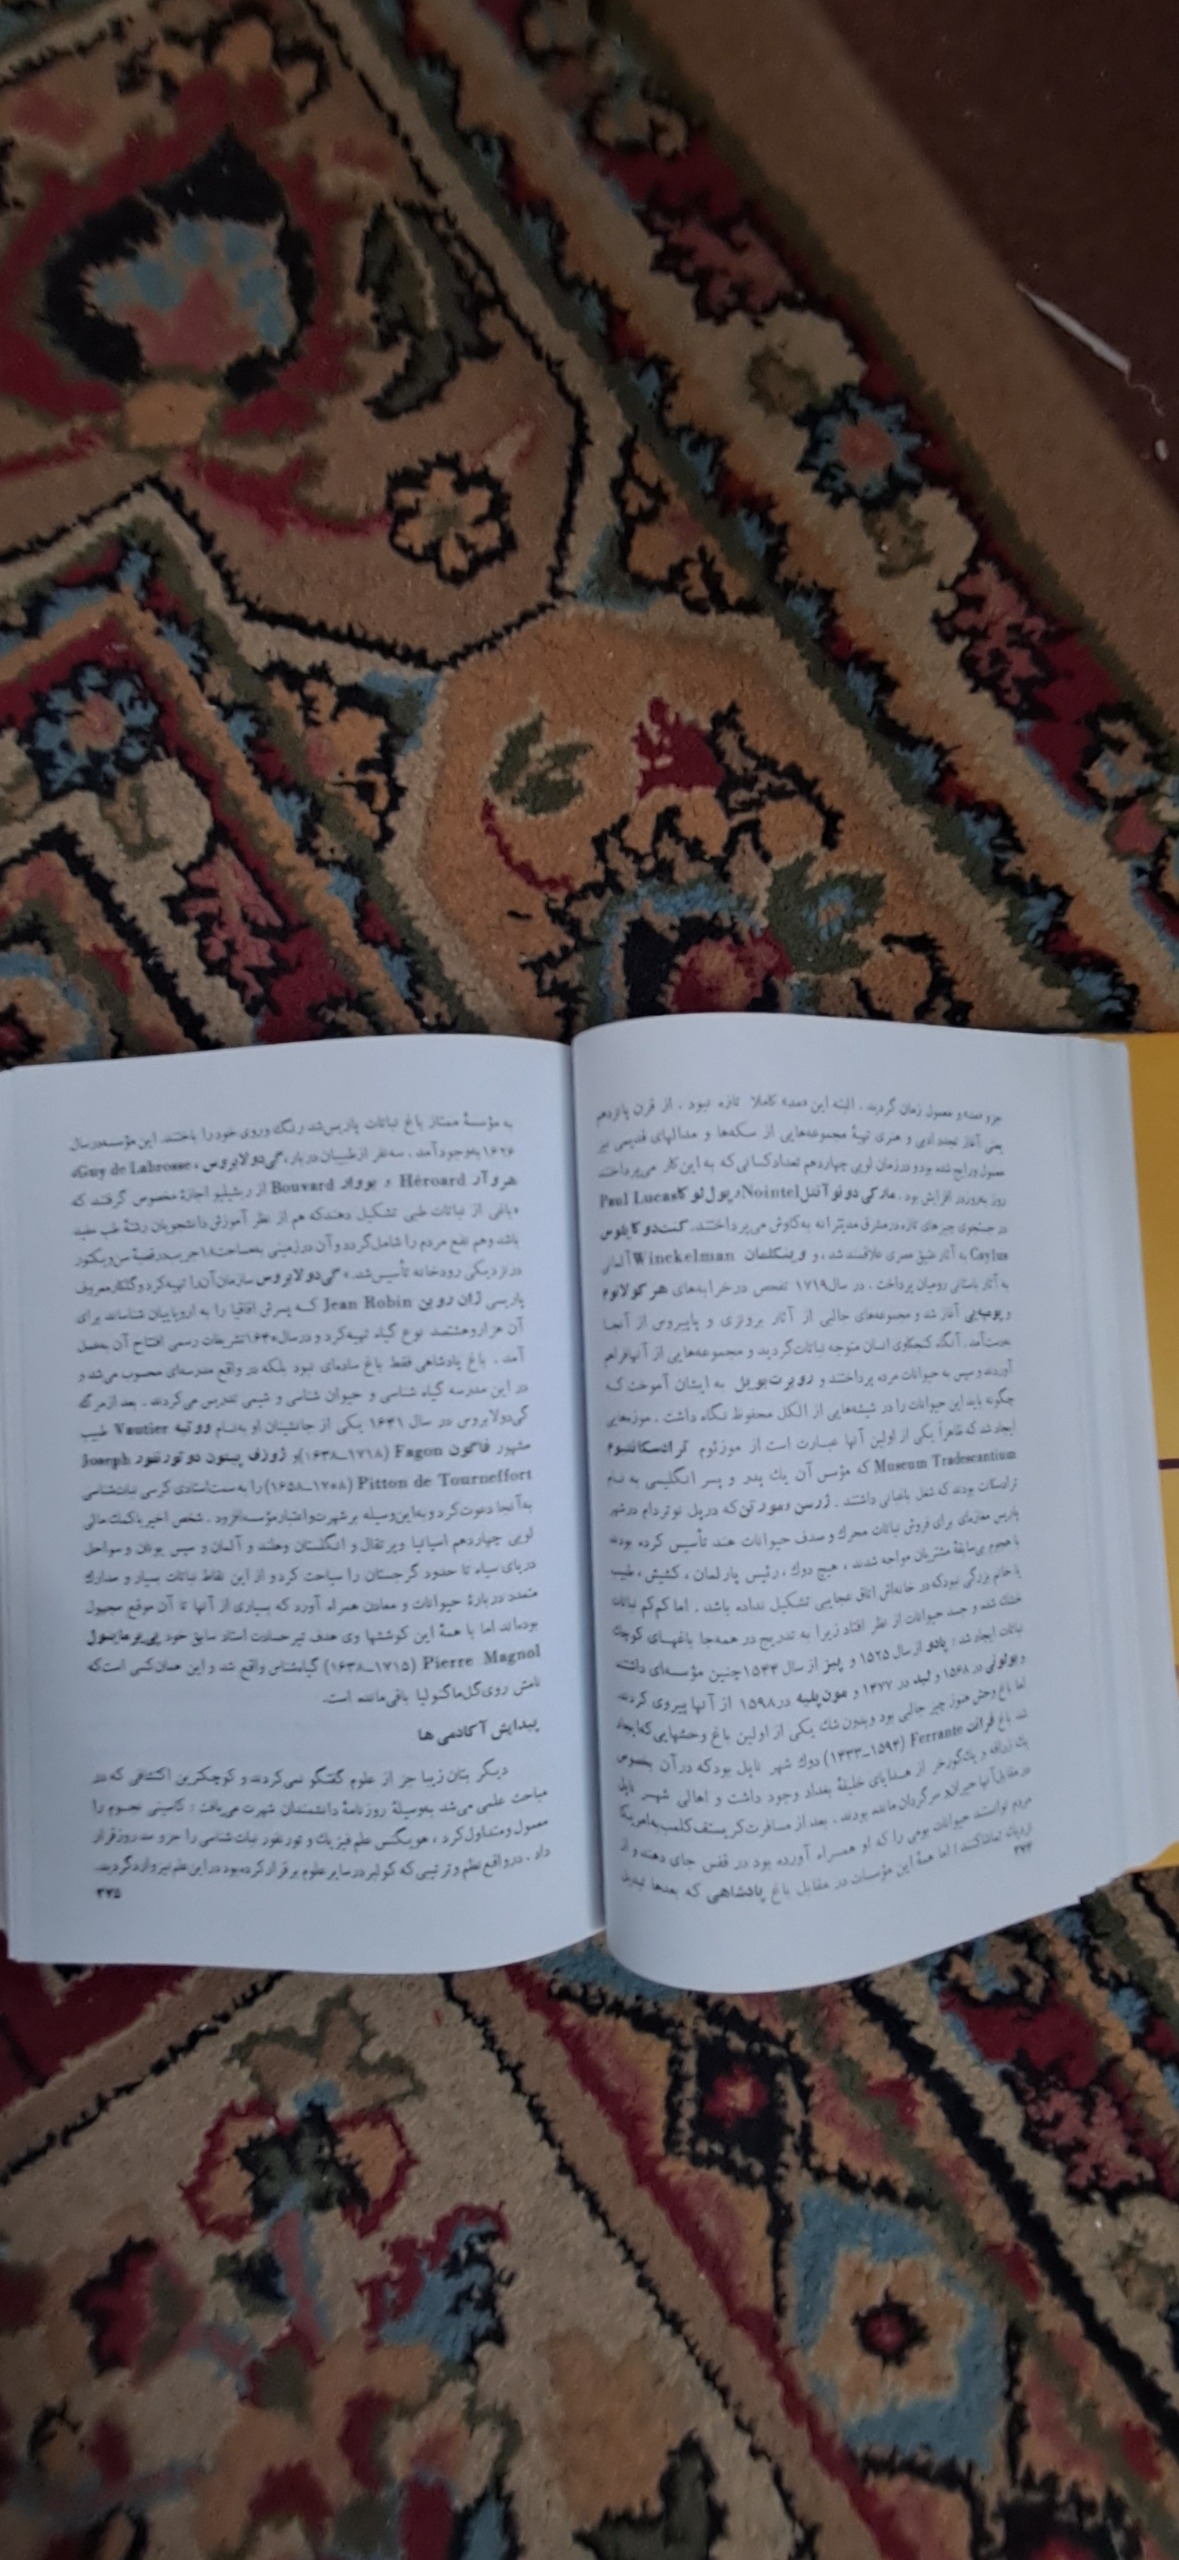 جزو «مد» و معمول زمان گردید. البته این «مد» کاملا تازه نبود. از قرن پانزدهم
یعنی آغاز تجدد ادبی و هنری تهیهٔ مجموعه‌هایی از سکه‌ها و مدالهای قدیمی نیز
معمول و رایج شده بود و در زمان لویی چهاردهم تعداد کسانی که به این کار می‌پرداختند
روز بروز افزایش بود. مارکی دو نو آنتل Nointel و پول لوکا Paul Lucas
در جستجوی چیزهای تازه در مشرق مدیترانه به کاوش می‌پرداختند. کنت دو کایلوس
Caylus به آثار عتیق مصری علاقمند شد، و وینکلمان Winckelman آلمانی
به آثار باستانی رومیان پرداخت. در سال ۱۷۱۹ تفحص در خرابه‌های هر کولانوم
و پومپه‌یی آغاز شد و مجموعه‌های جالبی از آثار برونزی و پاپیروس از آنجا
بدست آمد. آنگاه کنجکاوی انسان متوجه نباتات گردید و مجموعه‌هایی از آنها فراهم
آوردند و سپس به حیوانات مرده پرداختند و روبرت بویل به ایشان آموخت که
چگونه باید این حیوانات را در شیشه‌هایی از الکل محفوظ نگاه داشت. موزه‌هایی
ایجاد شد که ظاهراً یکی از اولین آنها عبارت است از موزئوم ترادسکانتیوم
Museum Tradescantium که مؤسس آن یک پدر و پسر انگلیسی به نام
ترادسکانت بودند که شغل باغبانی داشتند. ژرسن و مورتن که در پل نوتردام در شهر
پاریس مغازه‌ای برای فروش نباتات محرک و صدف حیوانات هند تأسیس کرده بودند
با هجوم بی‌سابقهٔ مشتریان مواجه شدند، هیچ دوک، رئیس پارلمان، کشیش، طبیب
یا خانم بزرگی نبود که در خانه‌اش اتاق عجایبی تشکیل نداده باشد. اما کم کم نباتات
خشک شده و جسد حیوانات از نظر افتاد زیرا به تدریج در همه جا باغهای کوچک
نباتات ایجاد شد: پادو از سال ۱۵۲۵ و پیز از سال ۱۵۴۴ چنین مؤسسه‌ای داشتند
و بولونی در ۱۵۶۸ و لید در ۱۴۷۷ و مون‌پلیه در ۱۵۹۸ از آنها پیروی کردند.
اما باغ وحش هنوز چیز جالبی بود و بدون شک یکی از اولین باغ وحشهایی که ایجاد
شد باغ فرانت Ferrante (۱۴۹۴-۱۴۲۳) دوک شهر ناپل بود که در آن بخصوص
یک زرافه و یک گورخر از هدایای خلیفهٔ بغداد وجود داشت و اهالی شهر ناپل
در مقابل آنها حیران و سرگردان مانده بودند. بعد از مسافرت کریستف کلمب به امریکا
مردم توانستند حیوانات بومی را که او همراه آورده بود در قفس جای دهند و از
نزدیک تماشا کنند؛ اما همهٔ این مؤسسات در مقابل باغ پادشاهی که بعدها تبدیل
۳۳۴
به مؤسسهٔ ممتاز باغ نباتات پاریس شد رنگ و روی خود را باختند. این مؤسسه در سال
۱۶۲۶ بوجود آمد. سه نفر از طبیبان دربار، «گی دولابروس، Guy de Labrosse»
هروآر Héroard و بووارد Bouvard از ریشلیو اجازهٔ مخصوص گرفتند که
«باغی از نباتات طبی تشکیل دهند که هم از نظر آموزش دانشجویان رشتهٔ طب مفید
باشد و هم نفع مردم را شامل گردد و آن در زمینی به مساحت ۱۸ جریب در قصبهٔ سن ویکتور
در نزدیکی رودخانه تأسیس شد.» گی دولابروس سازمان آن را تهیه کرد و گلکار معروف
پاریسی ژان روبن Jean Robin که پسرش اقاقیا را به اروپاییان شناساند برای
آن هزار و هشتصد نوع گیاه تهیه کرد و در سال ۱۶۴۰ تشریفات رسمی افتتاح آن به عمل
آمد. باغ پادشاهی فقط باغ ساده‌ای نبود بلکه در واقع مدرسه‌ای محسوب می‌شد و
در این مدرسه گیاه شناسی و حیوان شناسی و شیمی تدریس می‌کردند. بعد از مرگ
گی دولابروس در سال ۱۶۴۱ یکی از جانشینان او به نام ووتیه Vautier طبیب
مشهور فاگون Fagon (۱۷۱۸-۱۶۳۸) و ژوزف پیتون دو تورنفور Joseph
Pitton de Tourneffort (۱۷۰۸-۱۶۵۸) را به سمت استادی کرسی نبات شناسی
به آنجا دعوت کرد و به این وسیله بر شهرت و اعتبار مؤسسه افزود. شخص اخیر با کمک مالی
لویی چهاردهم اسپانیا و پرتقال و انگلستان و هلند و آلمان و سپس یونان و سواحل
دریای سیاه تا حدود گرجستان را سیاحت کرد و از این نقاط نباتات بسیار و مدارک
متعدد دربارهٔ حیوانات و معادن همراه آورد که بسیاری از آنها تا آن موقع مجهول
بوده‌اند اما با همهٔ این کوششها وی هدف تیر حسادت استاد سابق خود پی‌یر ماینیول
Pierre Magnol (۱۷۱۵-۱۶۳۸) گیاه‌شناس واقع شد و این همان کسی است که
نامش روی گل ماگنولیا باقی مانده است.
پیدایش آکادمی ها
دیگر بتان زیبا جز از علوم گفتگو نمی‌کردند و کوچکترین اکتشافی که در
مباحث علمی می‌شد به‌وسیلهٔ روزنامهٔ دانشمندان شهرت می‌یافت: کاسینی نجوم را
معمول و متداول کرد، هویگنس علم فیزیک و تورنفور نبات شناسی را جزو مد روز قرار
داد. در واقع نظم و ترتیبی که کولبر در سایر علوم برقرار کرده بود در این علم نیز وارد گردید.
۳۳۵